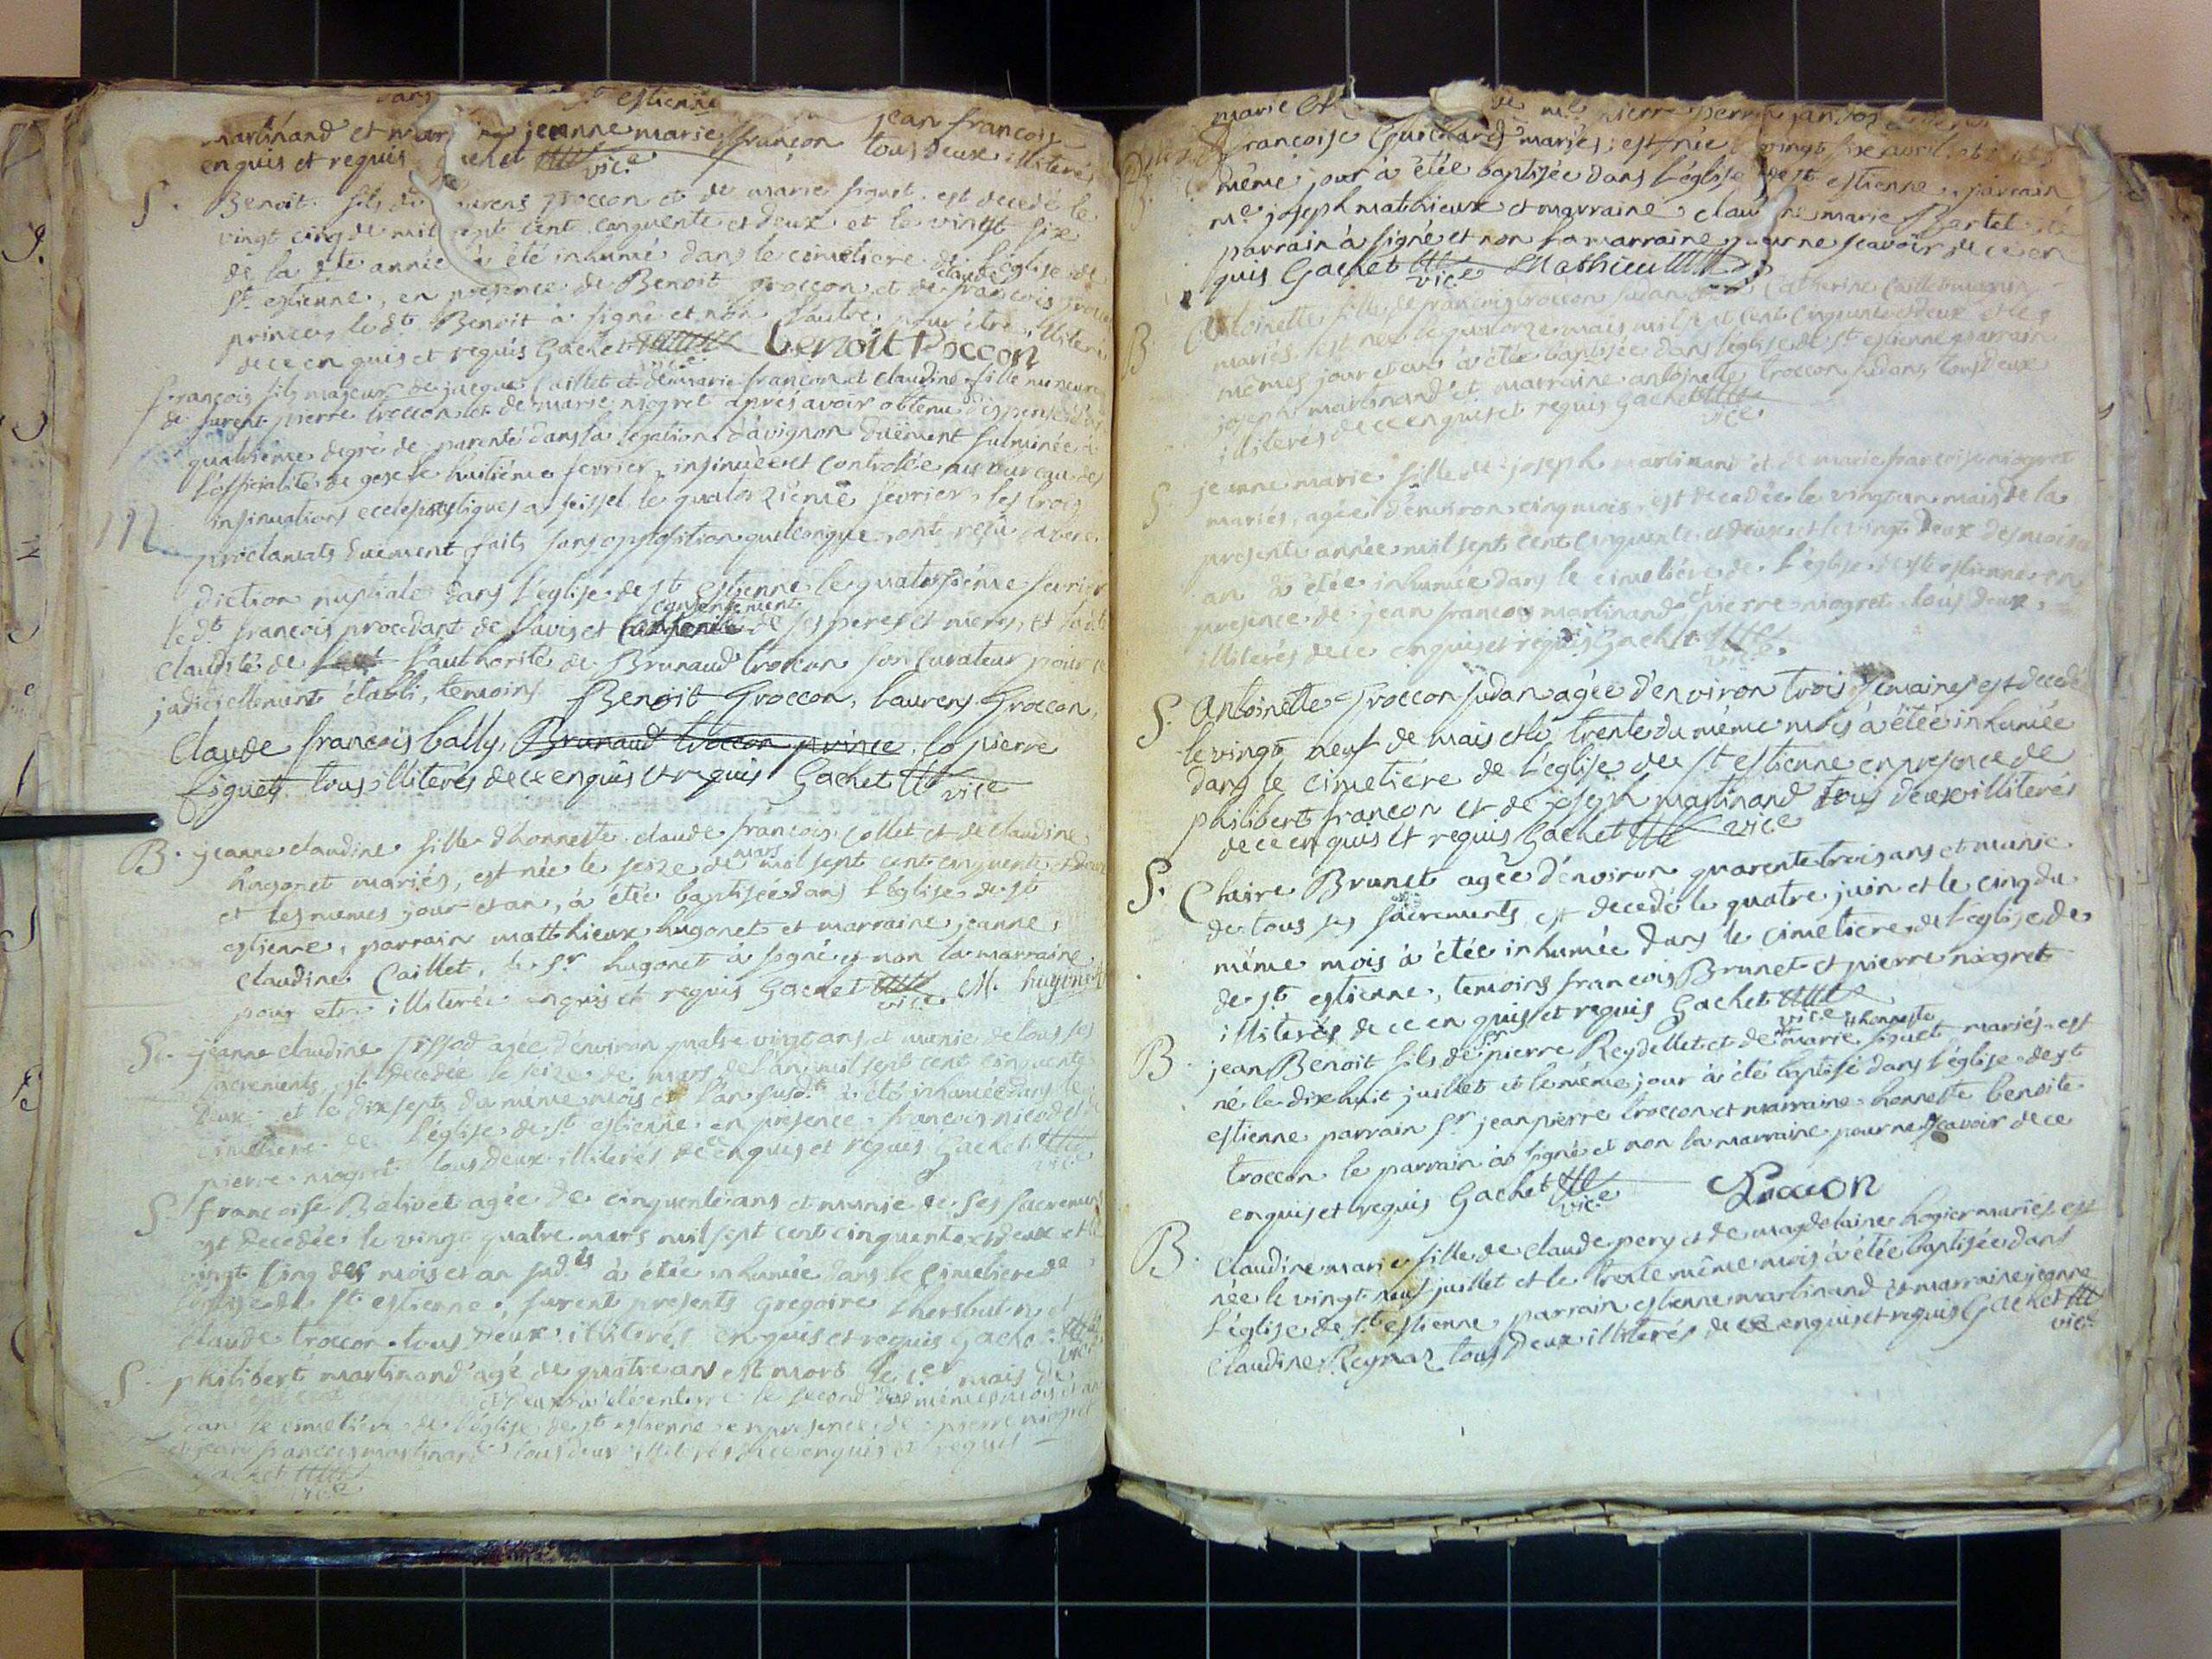 dans st estienne
martinand et jeanne marie françon jean françois
enquis et requis vice tous deux illiterés
S. Benoit fils du laurens troccon et de marie figuet est decedé le
vingt cinq de mil sept cent cinquente et deux et le vingt six
de la dte année à été inhumé dans le cimetiere de l'église de
st estienne, en presence de Benoit troccon et de claude françois
prince, le dt Benoit à signé et non l'autre pour être illiteré
de ce enquis et requis Gachet vice Benoit Troccon
françois fils majeur de jacques Caillet et de marie françon et claudine fille mineure
de furent pierre troccon et de marie niogret apres avoir obtenu dispense du
quatrième degré de parenté dans la legation d'avignon duëment fulminée à
l'officialité de gex le huitième fevrier, insinuée et controlée au bureau des
insinuations ecclesiastiques a seissel le quatorzième fevrier, les trois
112
proclamats duëment faits sans opposition quelconque, ont reçu la bene
diction nuptiale dans l'église de st estienne le quatorzième fevrier
le dt françois procedant de l'avis et consentement de ses peres et meres, et ladite
Claudine de l'authorité de Brunaud troccon son curateur pour ce
judiciellement établi, temoins Benoit Troccon, laurens Troccon,
Claude françois bally, Brunaud troccon prince, pierre
figuet tous illiterés de ce enquis et requis Gachet vice
B. jeanne claudine fille d'honneste claude françois Collet et de claudine
hugonet mariés, est née le seize de mars mil sept cent cinquente et deux
et les memes jour et an, à étée baptisée dans l'église de st
estienne, parrain matthieux hugonet et marraine jeanne
claudine Caillet, le sr hugonet à signé et non la marraine
pour etre illiterée enquis et requis Gachet vice M. hugonet
S. jeanne claudine Pissod agée d'environ quatre vingt ans, et munie de tous ses
sacrements, est decedée le seize de mars de l'an mil sept cent cinquente
deux et le dixsept du même mois et l'an susdt à été inhumée dans le
cimetiere de l'église de st estienne en presence françois nicod et
pierre niogret tous deux illiterés de ce enquis et requis Gachet vice
S. françoise Balivet agée de cinquente ans et munie de ses sacrements
est decedée le vingt quatre mars mil sept cent cinquente et deux et le
vingt cinq des mois et an sudts à étée inhumée dans le cimetiere de
l'église de st estienne, furent presents Gregoire
claude troccon tous deux illiterés enquis et requis Gachet vice
S. philibert martinand agé de quatre ans est mort le 1er mais de
et deux à été enterré le second des mêmes mois et an
dans le cimetiére de l'église de st estienne en presence de pierre niogret
et jean françois martinand tous deux illiterés de ce enquis et requis
Gachet vice
marie pierre perrin
françoise Guichard mariés, est née vingt six avril et
même jour à étée baptisée dans l'église de st estienne, parrain
me joseph matthieux et marraine claudine marie Bertet
parrain à signé et non la marraine pour ne scavoir de ce en
quis Gachet vice Mathieu
B. Antoinette fille de françois troccon judan Catherine Caille
mariés est née le quatorze mais mil sept cent cinquente et deux et les
mêmes jour et an à étée baptisée dans l'église de st estienne parrain
joseph martinand et marraine antoinette troccon judan tous deux
illiterés de ce enquis et requis Gachet vice
S. jeanne marie fille de joseph martinand et de marie françoise niogret
mariés, agée d'environ cinq mois est decedée le vingt un mais de la
presente année mil sept cent cinquente et deux et le vingt deux des mois et
an à étée inhumée dans le cimetiére de l'église de st estienne en
presence de jean françois martinand et pierre niogret tous deux
illiterés de ce enquis et requis Gachet vice
S. Antoinette Troccon judan agée d'environ trois semaines est decedé
le vingt neuf de mais et le trente du même mois à étée inhumée
dans le cimetiére de l'église de st estienne en presence de
philibert françon et de joseph martinand tous deux illiterés
de ce enquis et requis Gachet vice
S. Claire Brunet agée d'environ quarente trois ans et munie
de tous ses sacrements, est decedé le quatre juin et le cinq du
même mois à étée inhumée dans le cimetiere de l'église de
de st estienne, temoins françois Brunet et pierre niogret
illiterés de ce enquis et requis Gachet vice
B. jean Benoit fils de sr pierre Reydellet et de honneste marie figuet mariés est
né le dixhuit juillet et le même jour à été baptisé dans l'église de st
estienne parrain sr jean pierre troccon et marraine honneste benoite
troccon le parrain à signé et non la marraine pour ne scavoir de ce
enquis et requis Gachet vice Troccon
B. Claudine marie fille de claude pery et de magdelaine hogier mariés est
née le vingt neuf juillet et le trente même mois à étée baptisée dans
l'église de st estienne parrain estienne martinand et marraine jeanne
claudine Reymaz tous deux illiterés de ce enquis et requis Gachet vice